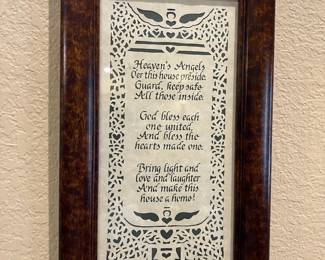 Heaven's Angels
O'er this house preside.
Guard, keep safe
All those inside.
God bless each
one united,
And bless the
hearts made one.
Bring light and
love and laughter
And make this
house a home!